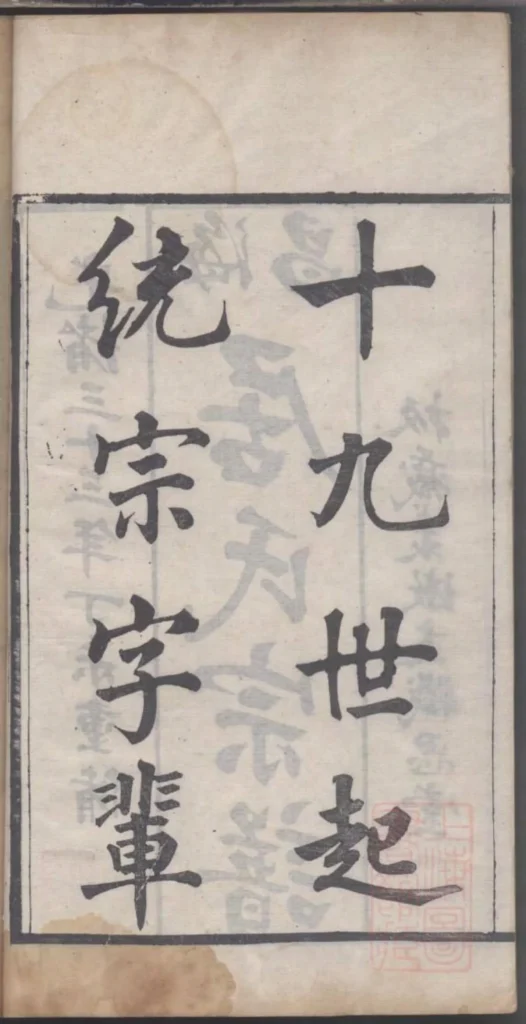 十九世起
統宗字輩